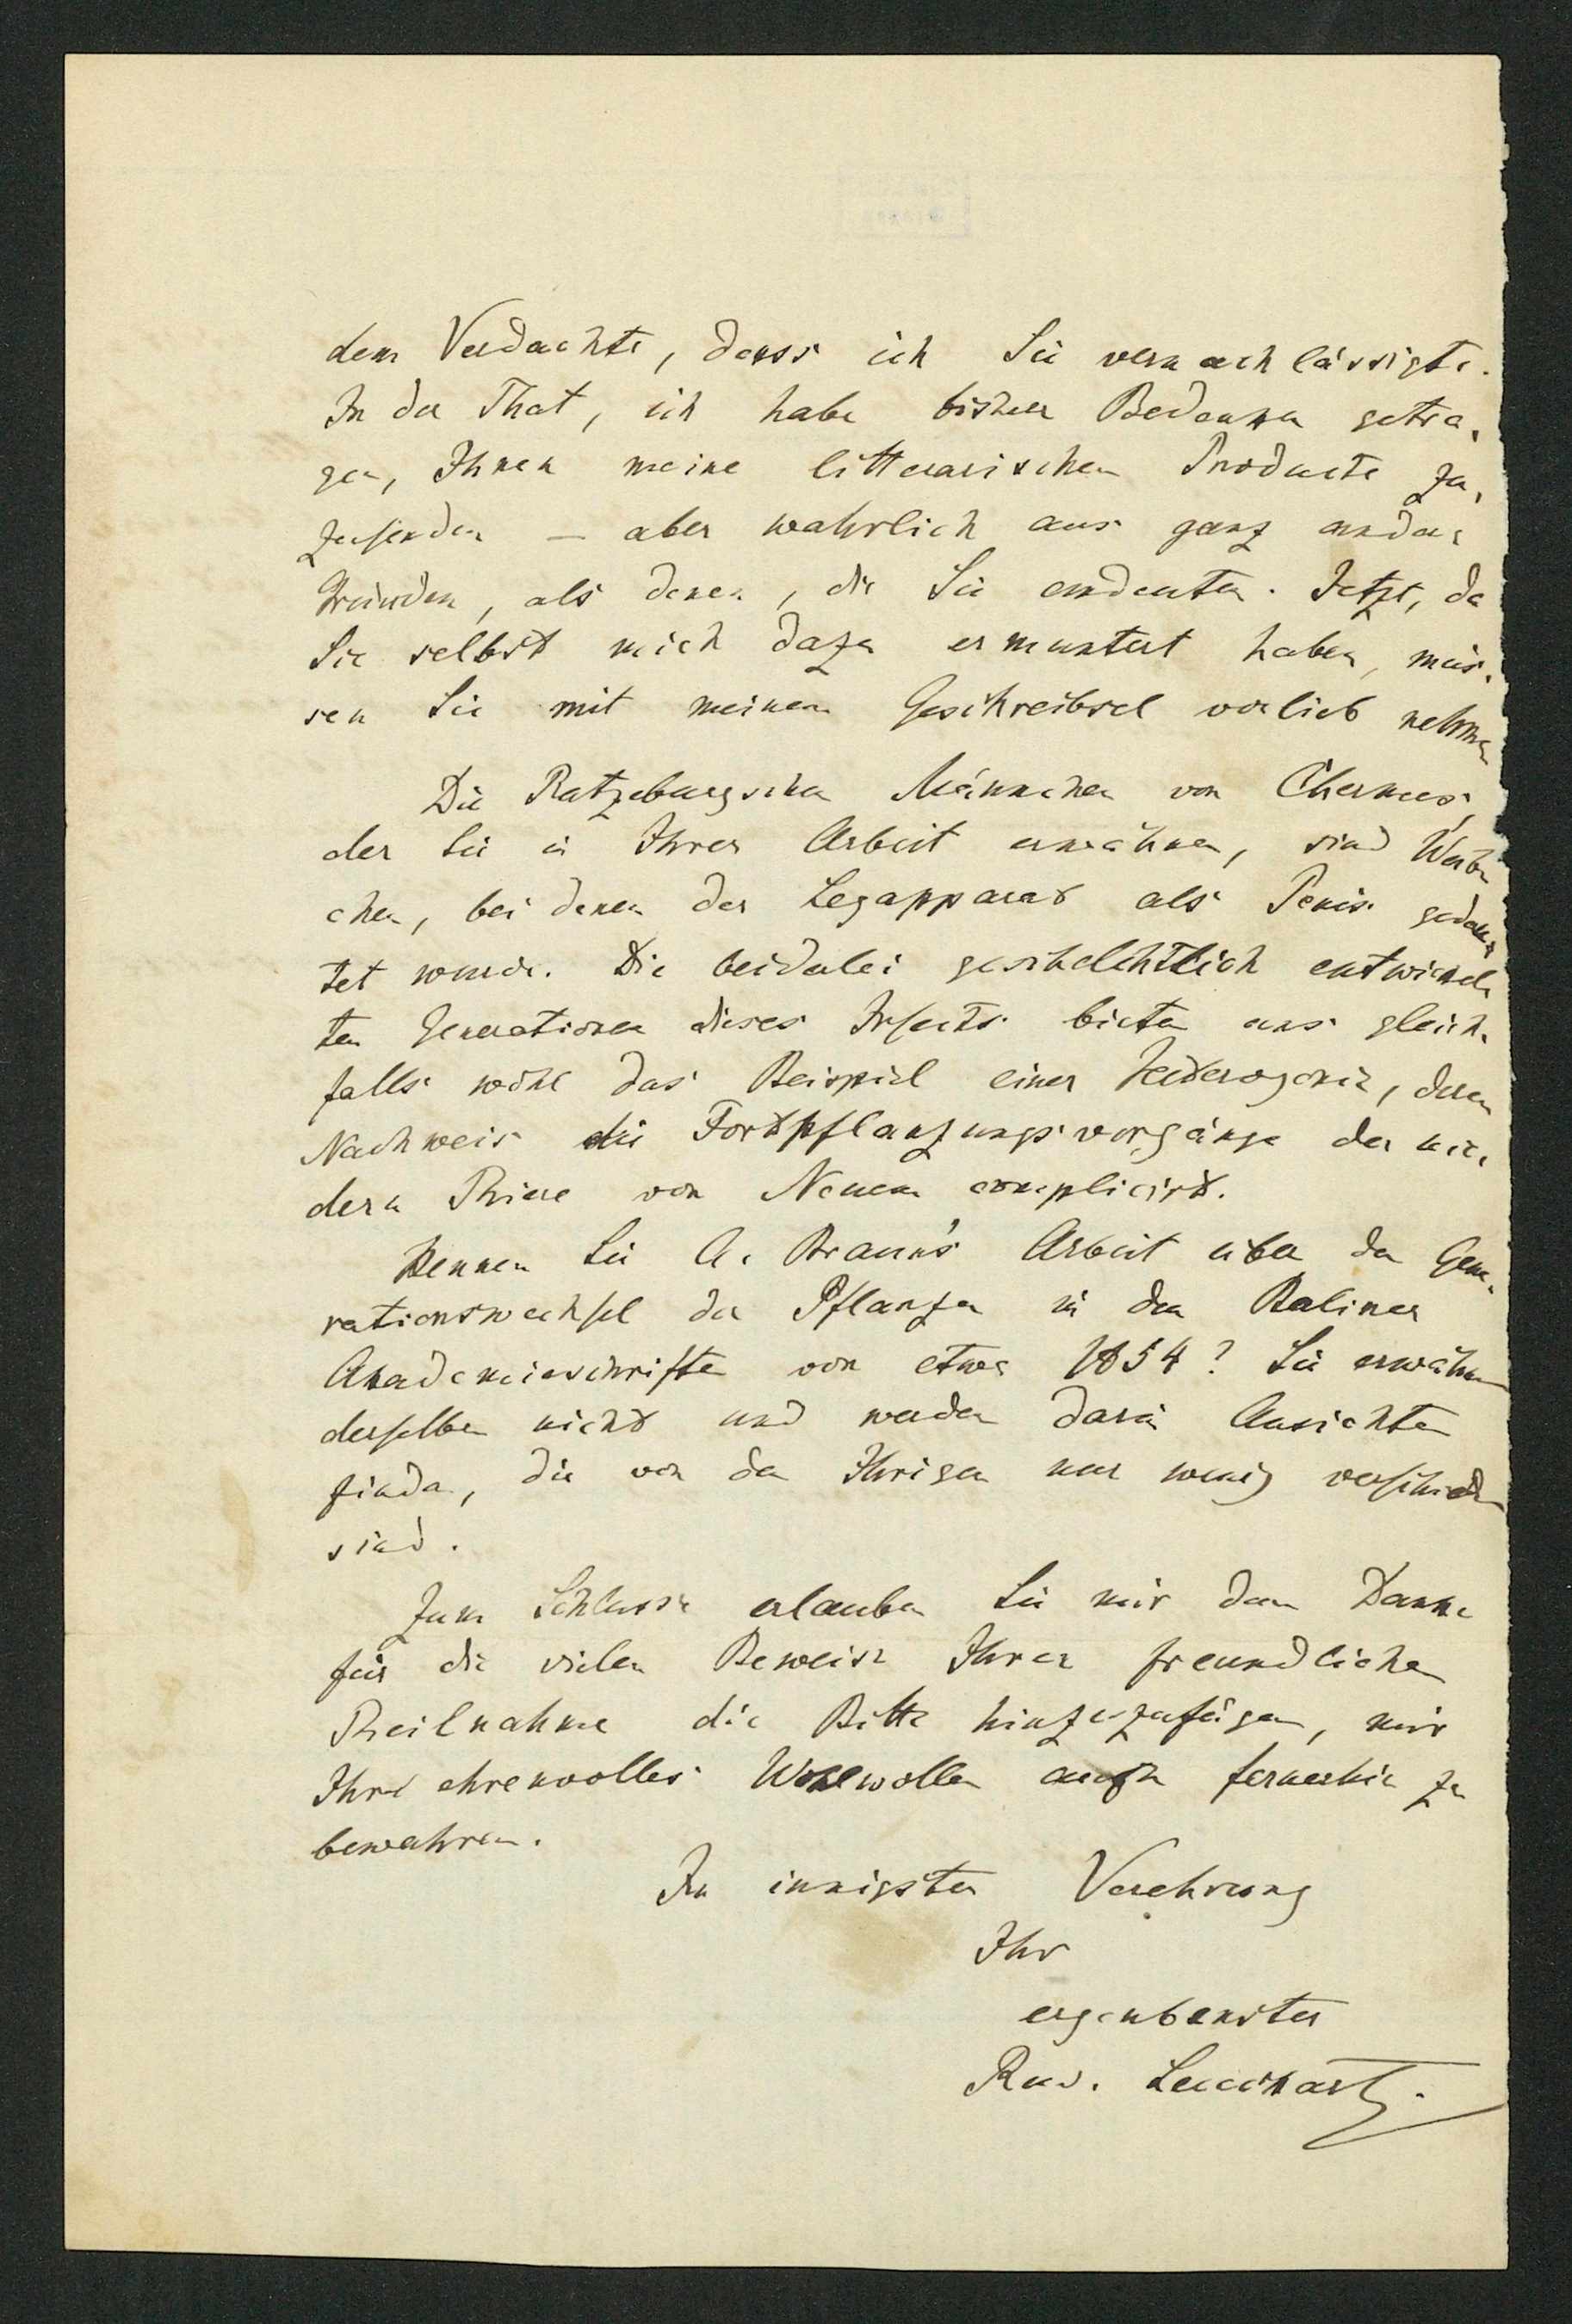 dem Verdachte, dass ich Sie vernachlässigte.
In der That, ich habe bisher Bedenken getra-
gen, Ihnen meine litterarischen Producte zu-
zusenden – aber wahrlich aus ganz andern
Gründen, als denen, die Sie andeuten. Jetzt, da
Sie selbst mich dazu ermuntert haben, müs-
sen Sie mit meinem Geschreibsel vorlieb nehmen
Die Ratzeburgschen Männchen von Chermes,
der Sie in Ihrer Arbeit erwähnen, sind Weib-
chen, bei denen der Legapparat als Penis gedeu-
tet wurde. Die beiderlei geschelchtlich entwickel-
ten Generationen dieses Insects bieten uns gleich-
falls wohl das Beispiel einer Heterogonie, deren
Nachweis die Fortpflanzungsvorgänge der nie-
dern Thiere von Neuem complicirt.
Kennen Sie A. Braun's Arbeit über den Gene-
rationswechsel der Pflanzen in den Berliner
Akademieschriften von etwa 1854? Sie erwähnen
derselben nicht und werden darin Ansichten
finden, die von den Ihrigen nur wenig verschieden
sind.
Zum Schlusse erlauben Sie mir dem Danke
für die vielen Beweise Ihrer freundlichen
Theilnahme die Bitte hinzuzufügen, mir
Ihr ehrenvolles Wohlwollen auch fernerhin zu
bewahren.
In innigster Verehrung
Ihr
ergenbenster
Rud. Leuckart.